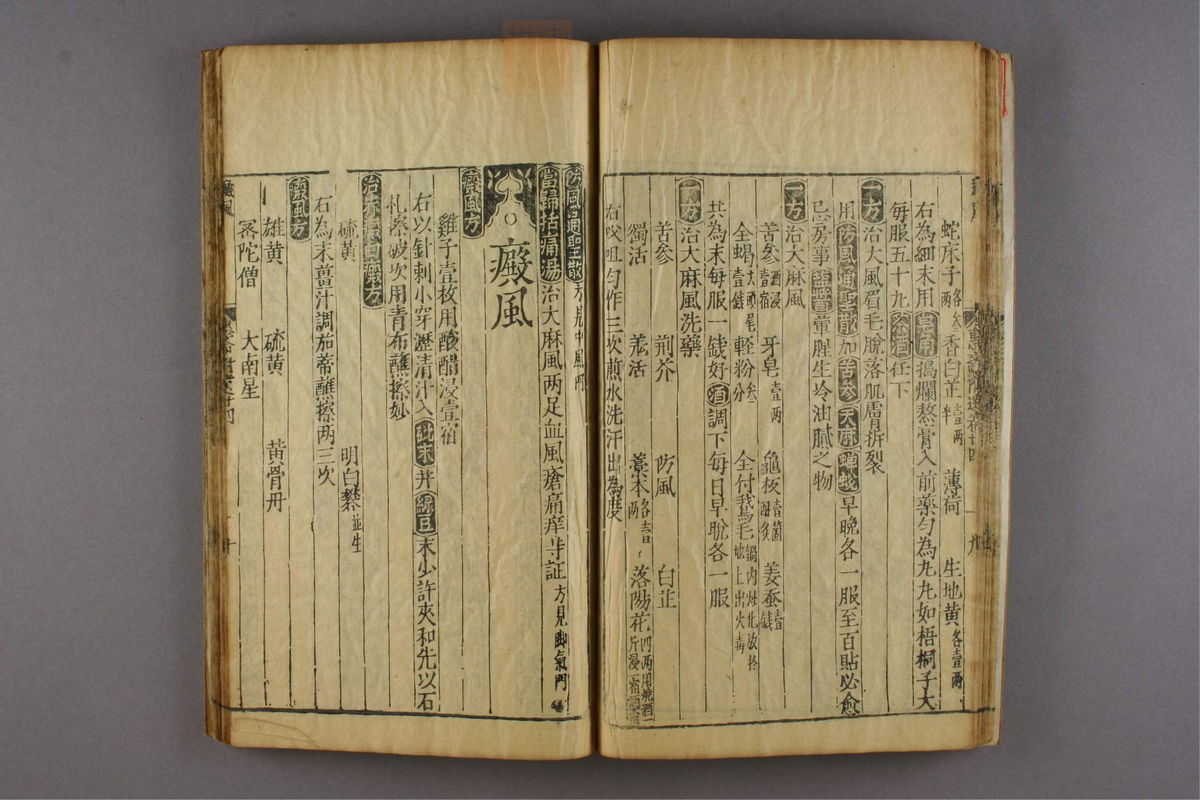 蛇床子各叁两 香白芷壹两半 薄荷 生地黄各壹两
右為細末用皂角搗爛熬膏入前藥匀為丸丸如梧桐子大
每服五十九茶酒任下
一方治大風眉毛脫落肌膚拆裂
用防風通聖散加苦參天麻蟬蛻早晚各一服至百貼必愈
忌房事鹽醬葷腥生冷油膩之物
一方治大麻風
苦參酒浸壹宿 牙皂壹两 龜板壹箇酥炙 姜蚕壹錢
全蝎去頭尾壹錢 輊粉叁分 全付鵝毛鍋内炒化放於地上出火毒
共為末每服一錢好酒調下每日早晚各一服
一方治大麻風洗藥
苦參 荊芥 防風 白芷
獨活 羗活 藁本各壹两 落陽花四两用燒酒二斤浸一宿
右㕮咀匀作三次煎水洗汗出為度
防風通聖散方見中風門
當歸拈痛湯治大麻風两足血風瘡痛痒等証方見脚氣門
癜風
癜風方
雞子壹枚用酸醋浸壹宿
右以針刺小穿瀝清汁入砒末并綠豆末少許夾和先以石
札擦破次用青布蘸擦妙
治赤白癜方
硫黄 明白礬並生
右為末薑汁調茄蒂蘸擦两三次
癜風方
雄黄 硫黄 黄骨丹
宻陀僧 大南星
癜風